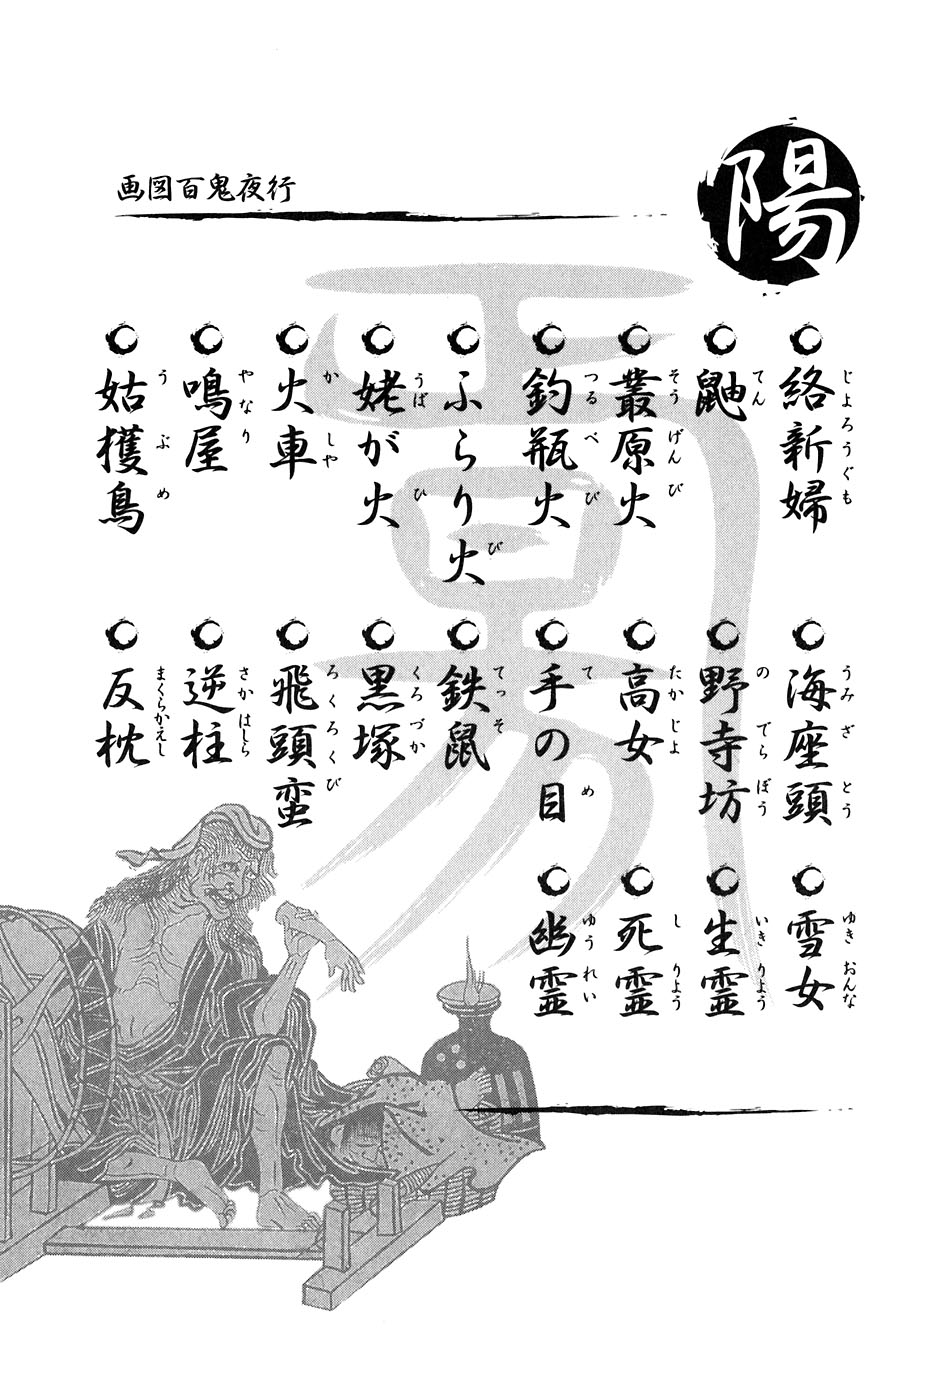 陽
画図百鬼夜行
絡新婦
じよろうぐも
鼬
てん
叢原火
そうげんび
釣瓶火
つるべび
ふらり火
び
姥が火
うばひ
火車
かしや
鳴屋
やなり
姑獲鳥
うぶめ
海座頭
うみざとう
野寺坊
のでらぼう
高女
たかじよ
手の目
てめ
鉄鼠
てつそ
黒塚
くろづか
飛頭蛮
ろくろくび
逆柱
さかはしら
反枕
まくらかえし
雪女
ゆきおんな
生霊
いきりよう
死霊
しりよう
幽霊
ゆうれい